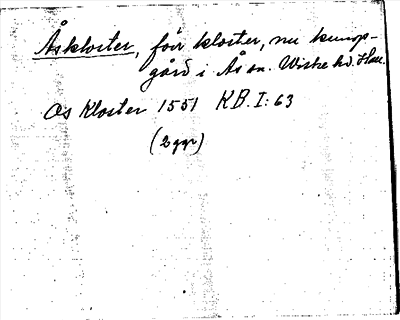 Åskloster, förr kloster, nu kungs-
gård i Ås sn. Wiske hd. Hall.
Os Kloster 1551 KB. I: 63
(2 ggr)